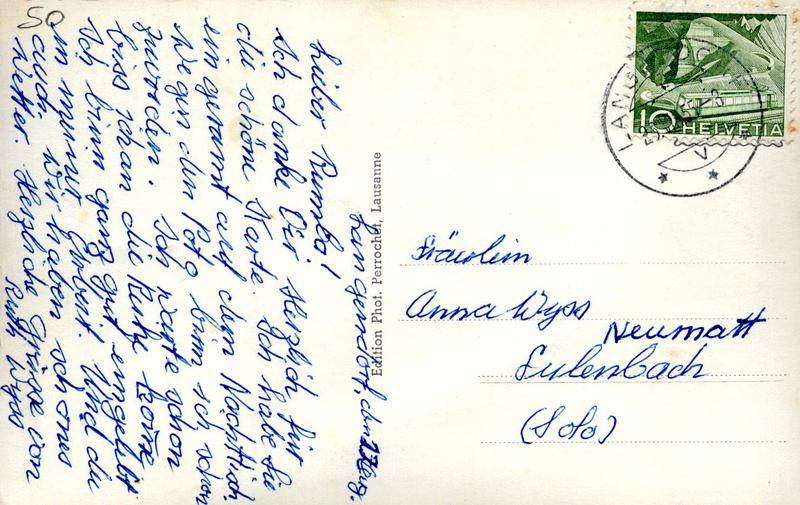 50
Langendorf, den 27. Aug.
Lieber Rumba!
Ich danke Dir herzlich für
die schöne Karte. Ich habe sie
eingeramt auf dem Nachttisch.
Wegen dem Foto binn ich schon
zufrieden. Ich warte schon
biss schan die Reihe
Ich binn ganz gut eingelebt
in mminer Arbeit. Und du
auch. Wir haben schönes
Wetter. Herzliche Grüsse von
Ruth Wyss
Edition Phot. Perrochet, Lausanne
HELVETIA
10
LANGENDORF
Fräulein
Anna Wyss
Neumatt
Eulenbach
(Solo)